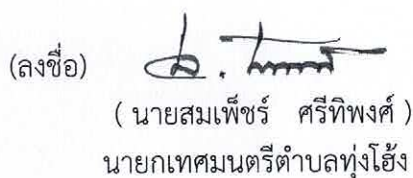 (ลงชื่อ)
( นายสมเพ็ชร์ ศรีทิพงศ์ )
นายกเทศมนตรีตำบลทุ่งโฮ้ง